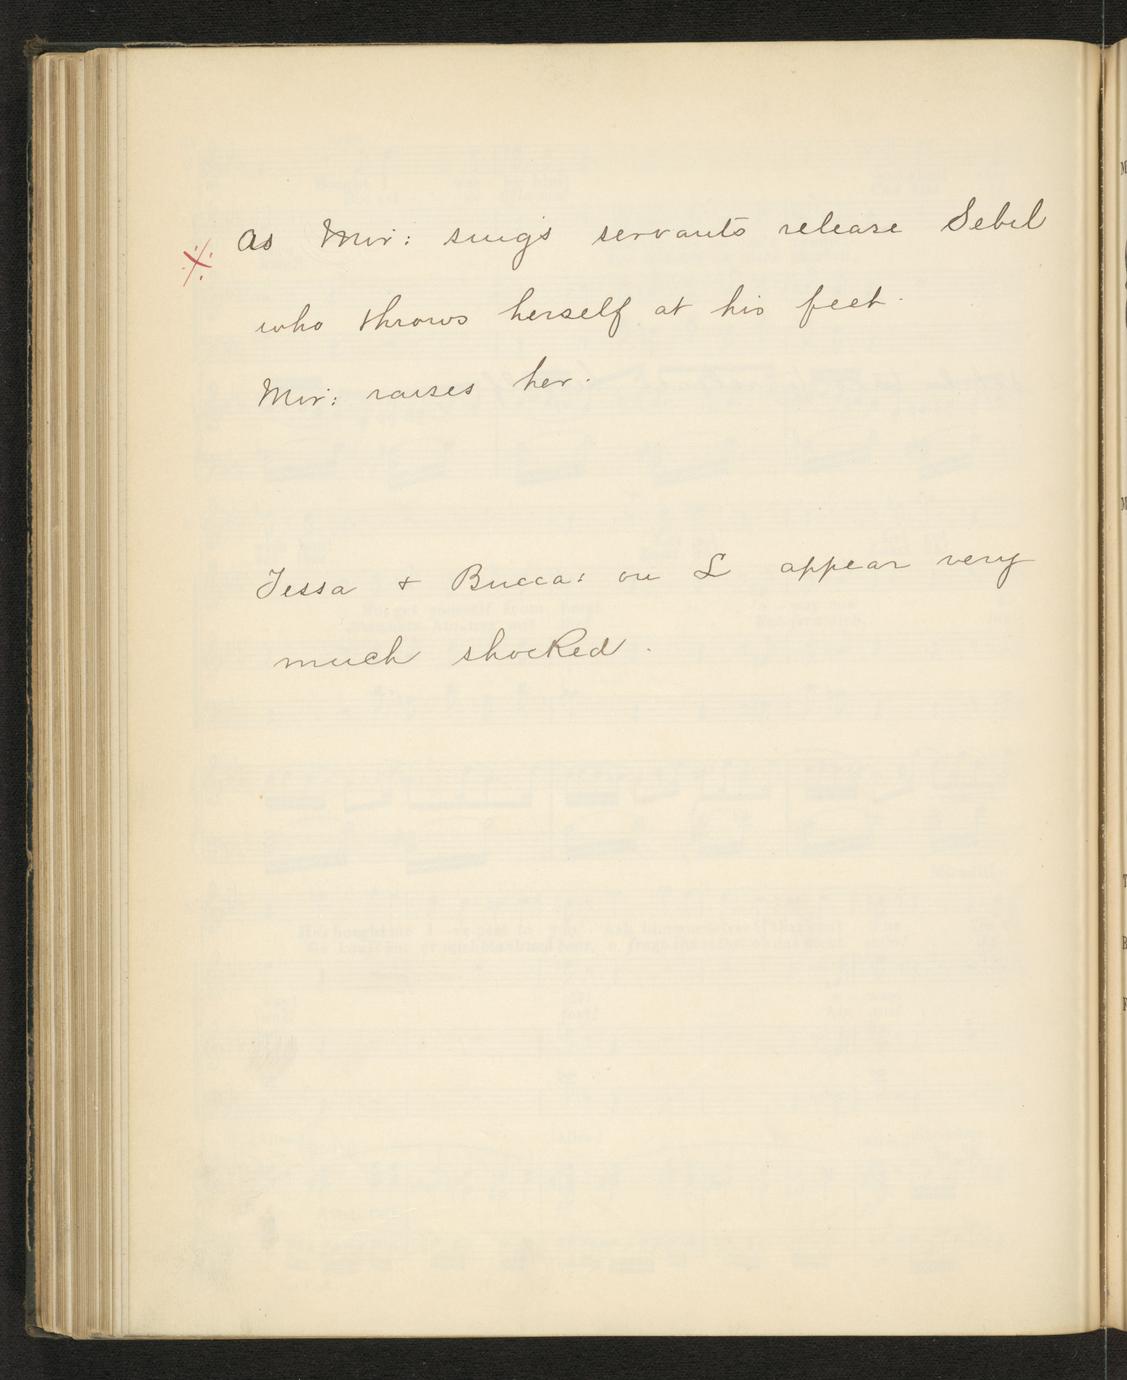 As Mir: sings servants release Sebil
who throws herself at his feet.
Mir: raises her.
Tessa & Bucca: on L appear very
much shocked.